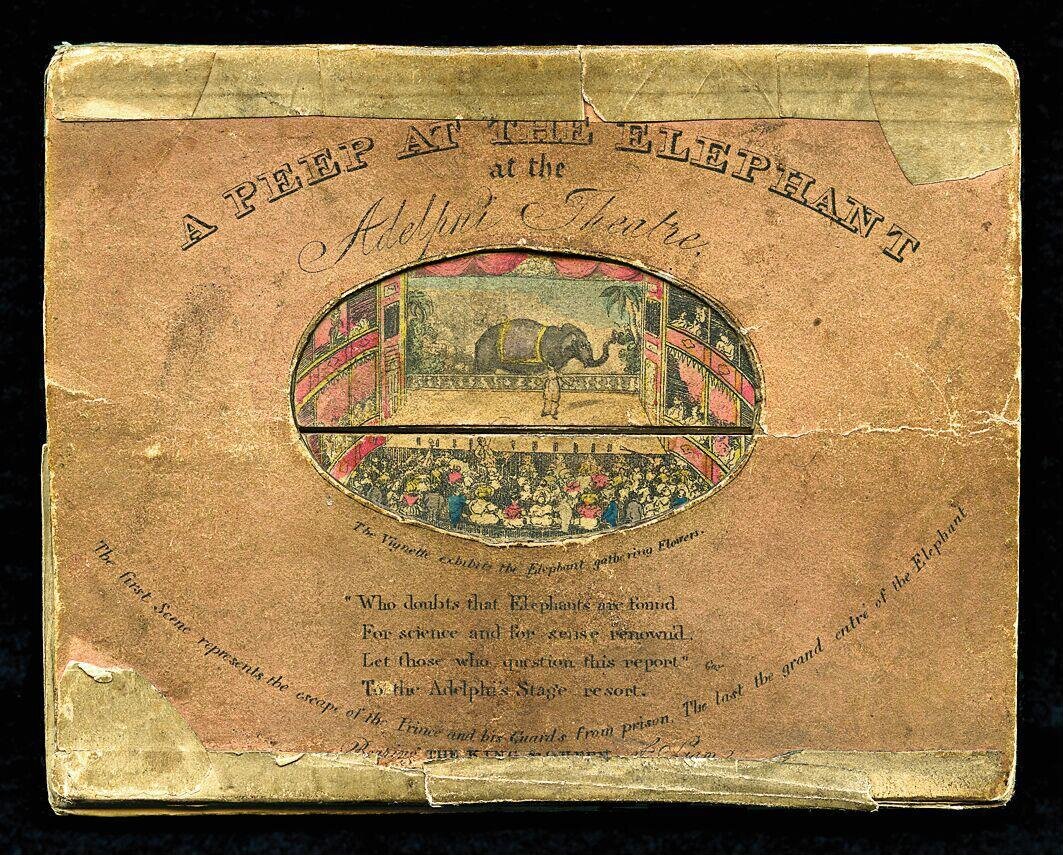 A PEEP AT THE ELEPHANT
at the
Adelphi Theatre.
The Vignette exhibits the Elephant gathering Flowers.
"Who doubts that Elephants are found
For science and for sense renown'd.
Let those who question this report" Gay.
To the Adelphi's Stage resort.
The first Scene represents the escape of the Prince and his Guards from prison. The last the grand entré of the Elephant
THE KING & QUEEN